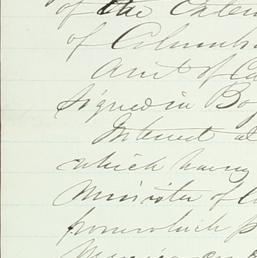 of the Exten
of Columb
Amt of Ca
signed in Bo
Interest at
which having
Minister of
from which p